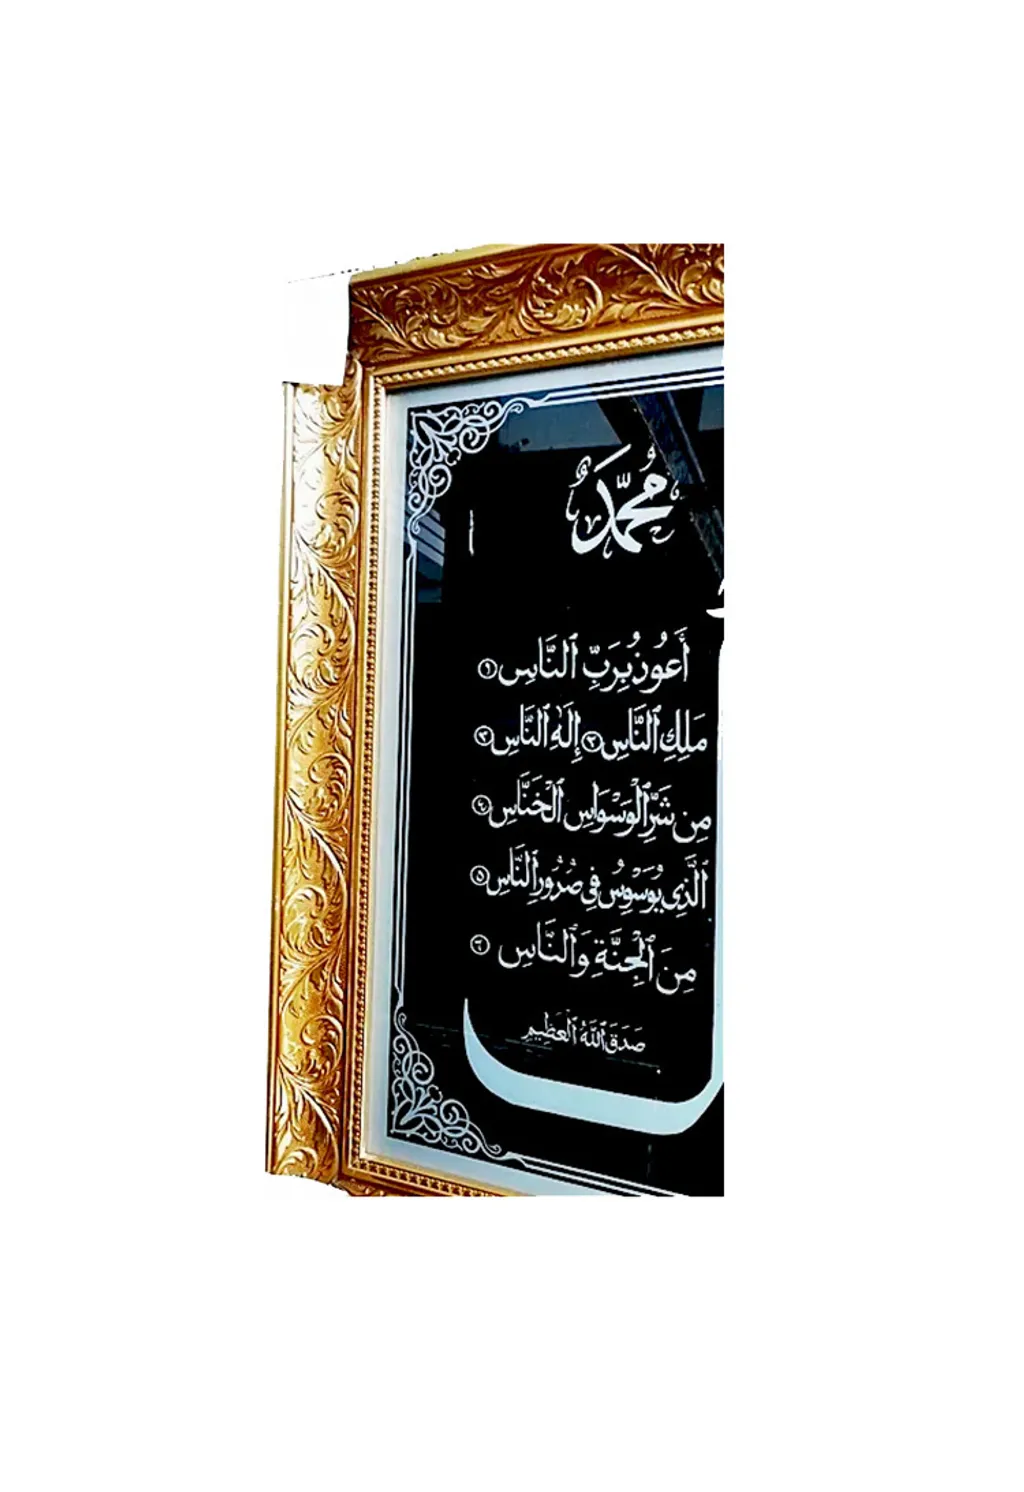 مُحَمَّدٌ
أَعُوذُ بِرَبِّ ٱلنَّاسِ ١
مَلِكِ ٱلنَّاسِ ٢ إِلَٰهِ ٱلنَّاسِ ٣
مِن شَرِّ ٱلْوَسْوَاسِ ٱلْخَنَّاسِ ٤
ٱلَّذِي يُوَسْوِسُ فِي صُدُورِ ٱلنَّاسِ ٥
مِنَ ٱلْجِنَّةِ وَٱلنَّاسِ ٦
صَدَقَ ٱللَّهُ ٱلْعَظِيمُ